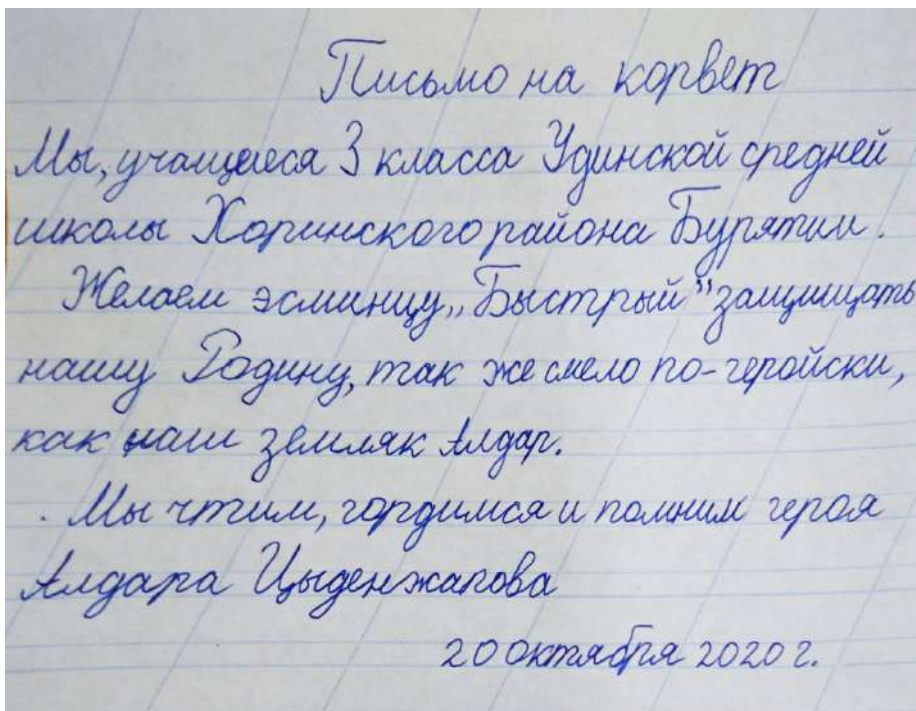 Письмо на корвет
Мы, учащиеся 3 класса Удинской средней
школы Хоринского района Бурятии.
Желаем эсминцу „Быстрый" защищать
нашу Родину, так же смело по-геройски,
как наш земляк Алдар.
. Мы чтим, гордимся и помним героя
Алдара Цыденжапова
20 октября 2020 г.